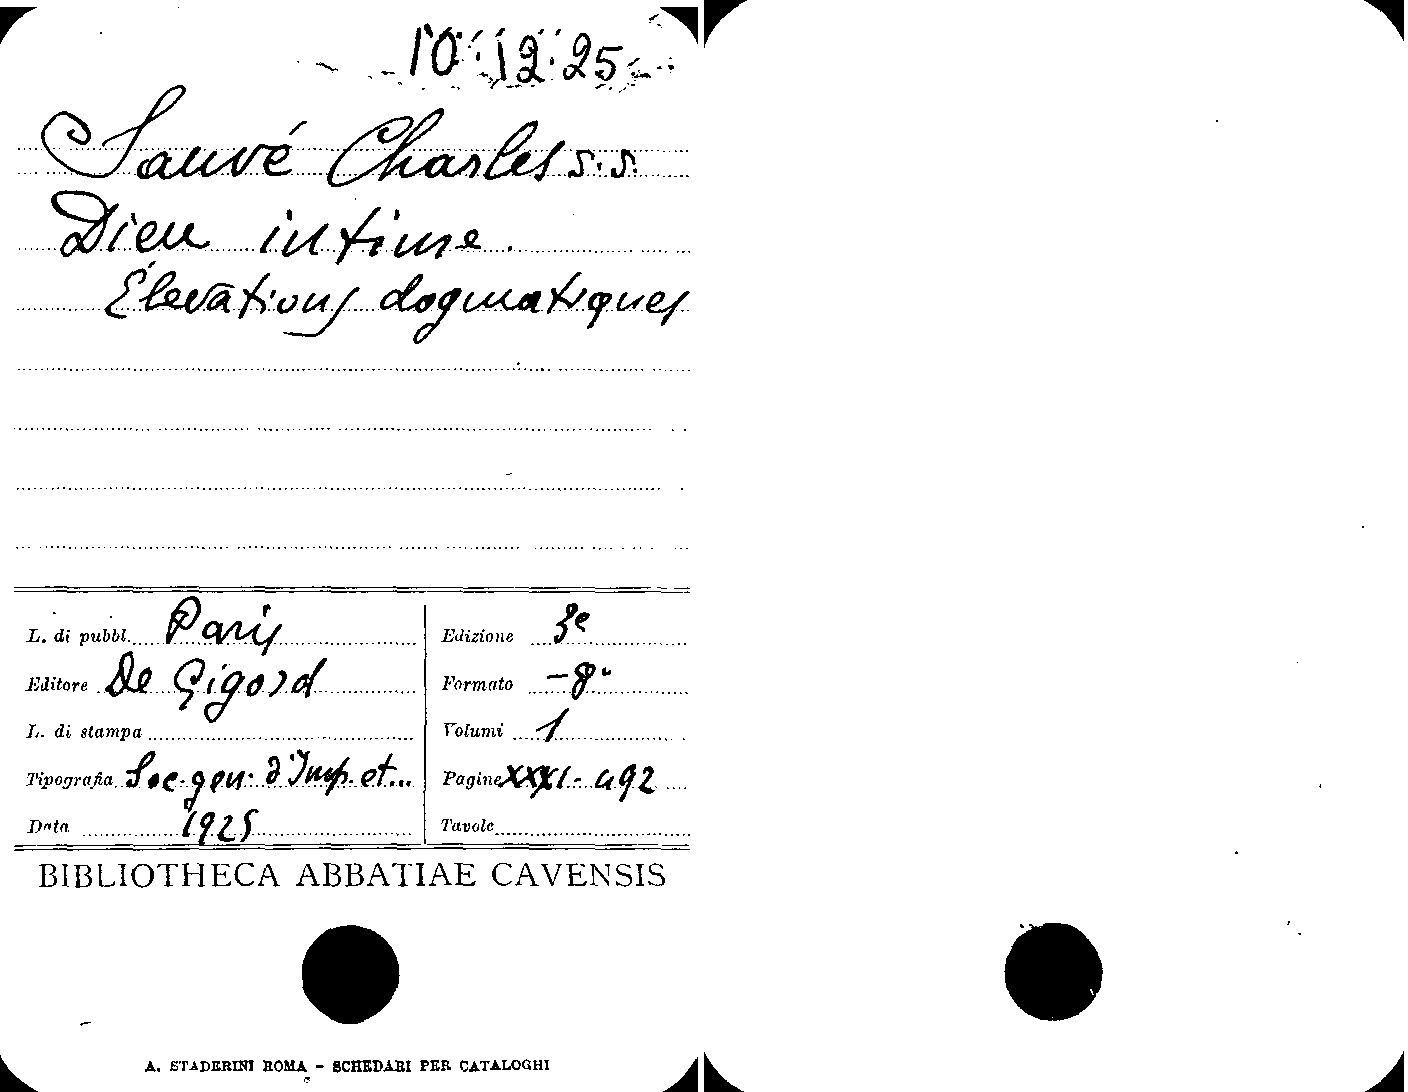 10. 12. 25
Sauvé Charles s.s.
Dieu intime.
Élevations dogmatiques
L. di pubbl. Paris
Editore De Gigord
L. di stampa
Tipografia Soc. gen. d'Imp. et...
Data 1925
Edizione 3e
Formato -8°
Volumi 1
Pagine XXXI-492
Tavole
BIBLIOTHECA ABBATIAE CAVENSIS
A. STADERINI ROMA - SCHEDARI PER CATALOGHI